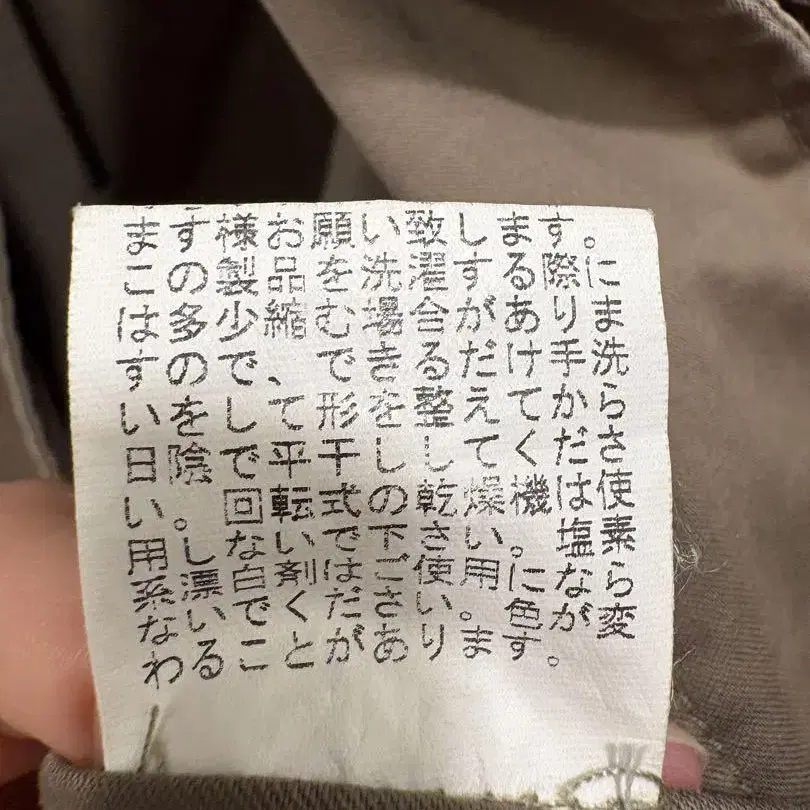 ます様お願い致します。
この製品を洗濯する際に
は多少縮む場合がありま
すので、できるだけ手洗
いをして形を整えてから
日陰で平干ししてくださ
い。回転式の乾燥機は使
用しないで下さい。塩素
系漂白剤はご使用になら
ないでください。色が変
わることがあります。